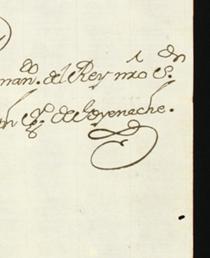 man^do. del Rey nro S^or.
de Goyeneche.